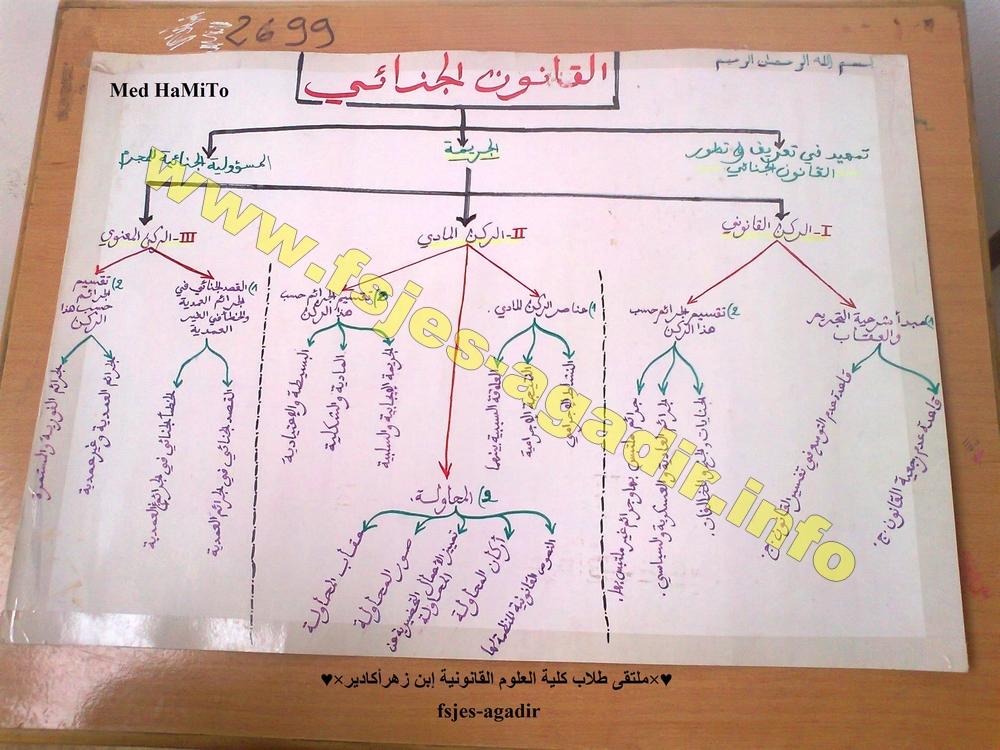 2699
بسم الله الرحمان الرحيم
Med HaMiTo
القانون الجنائي
تمهيد في تعريف و تطور
القانون الجنائي
الجريمة
المسؤولية الجنائية للمجرم
I- الركن القانوني
II- الركن المادي
III- الركن المعنوي
1) مبدأ شرعية التجريم
والعقاب
2) تقسيم الجرائم حسب
هذا الركن
1) عناصر الركن المادي.
تقسيم الجرائم حسب
هذا الركن
1) القصد الجنائي في
الجرائم العمدية
والخطأ في الغير
العمدية
2) تقسيم
الجرائم
حسب هذا
الركن
قاعدة عدم رجعية القانون ج.
قاعدة عدم التوسع في تفسير القانون ج.
الجنايات والجنح والمخالفات.
العادية والعسكرية والسياسي.
جرائم متلبس بها وجرائم غير متلبس بها.
النشاط الإجرامي
النتيجة الإجرامية
العلاقة السببية بينهما
الجريمة الإيجابية والسلبية
المادية والشكلية
البسيطة والإعتيادية
القصد الجنائي في الجرائم العمدية
الخطأ الجنائي في الجرائم غير العمدية
الجرائم العمدية و غير عمدية
الجرائم الفورية والمستمرة
2) المحاولة
النصوص القانونية المنظمة لها
أركان المحاولة
تمييز الأعمال التحضيرية عن
المحاولة
صور المحاولة
عقاب المحاولة
www.fsjes-agadir.info
♥×ملتقى طلاب كلية العلوم القانونية إبن زهرأكادير×♥
fsjes-agadir